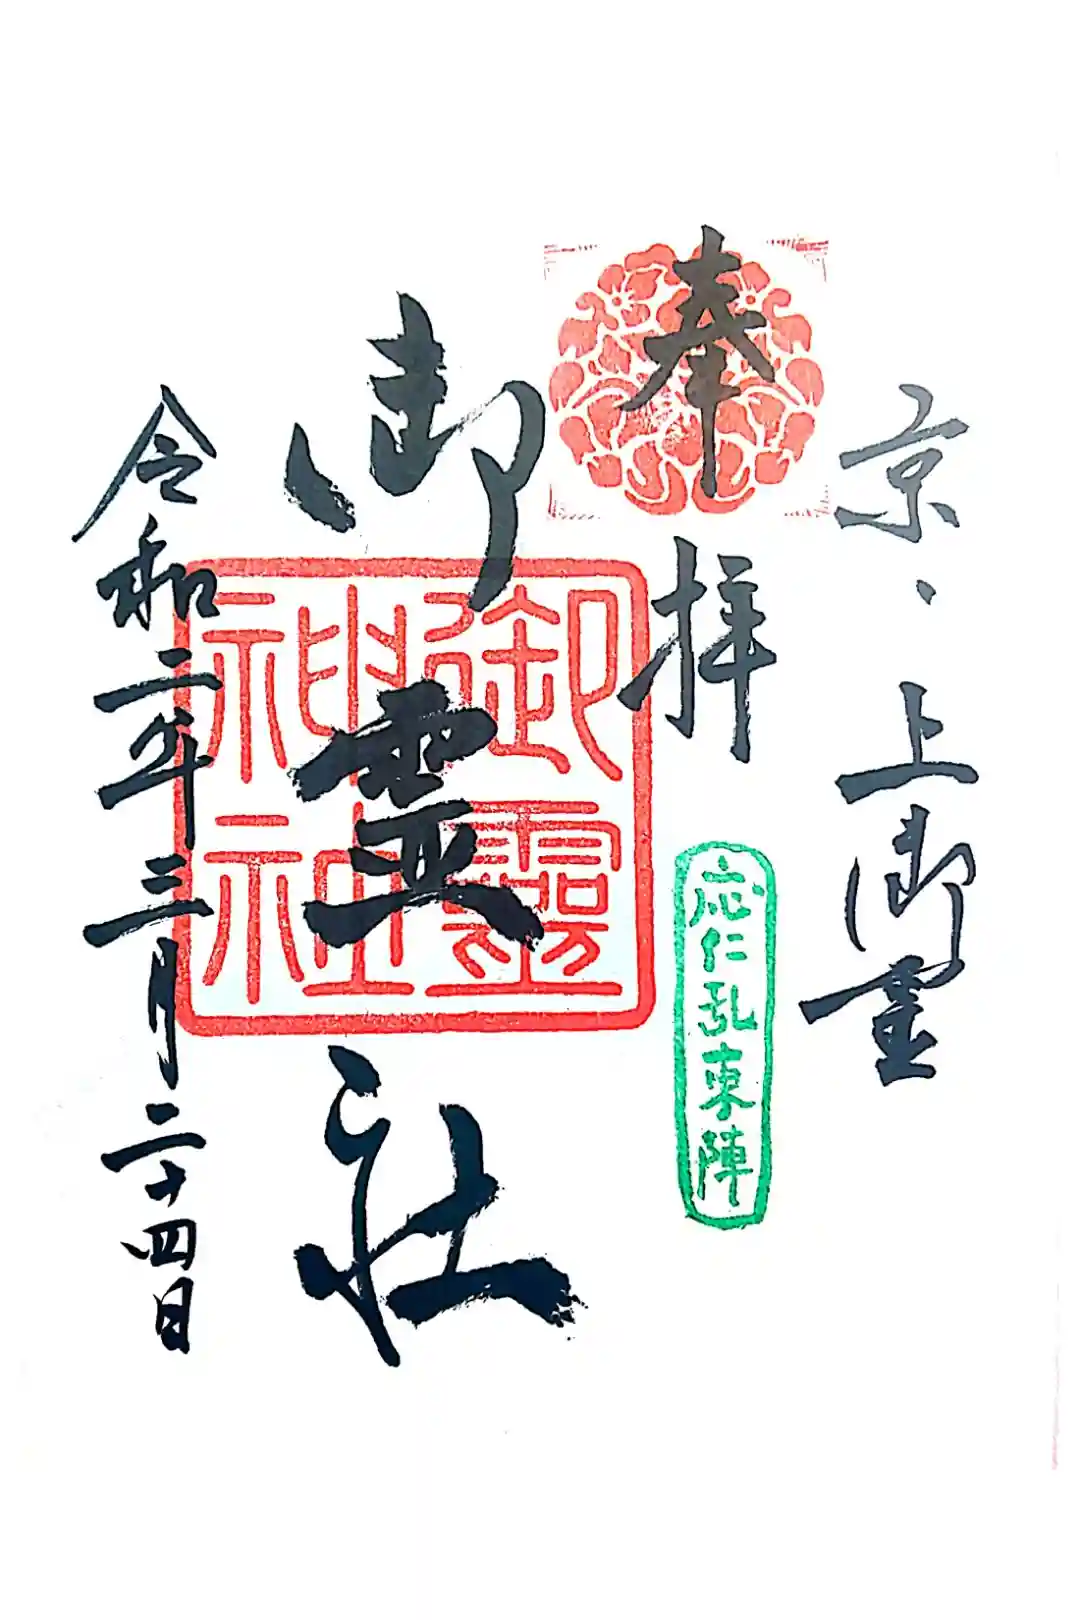 京、上御霊
奉拝
応仁乱東陣
御霊社
御靈
神社
令和二年三月二十四日